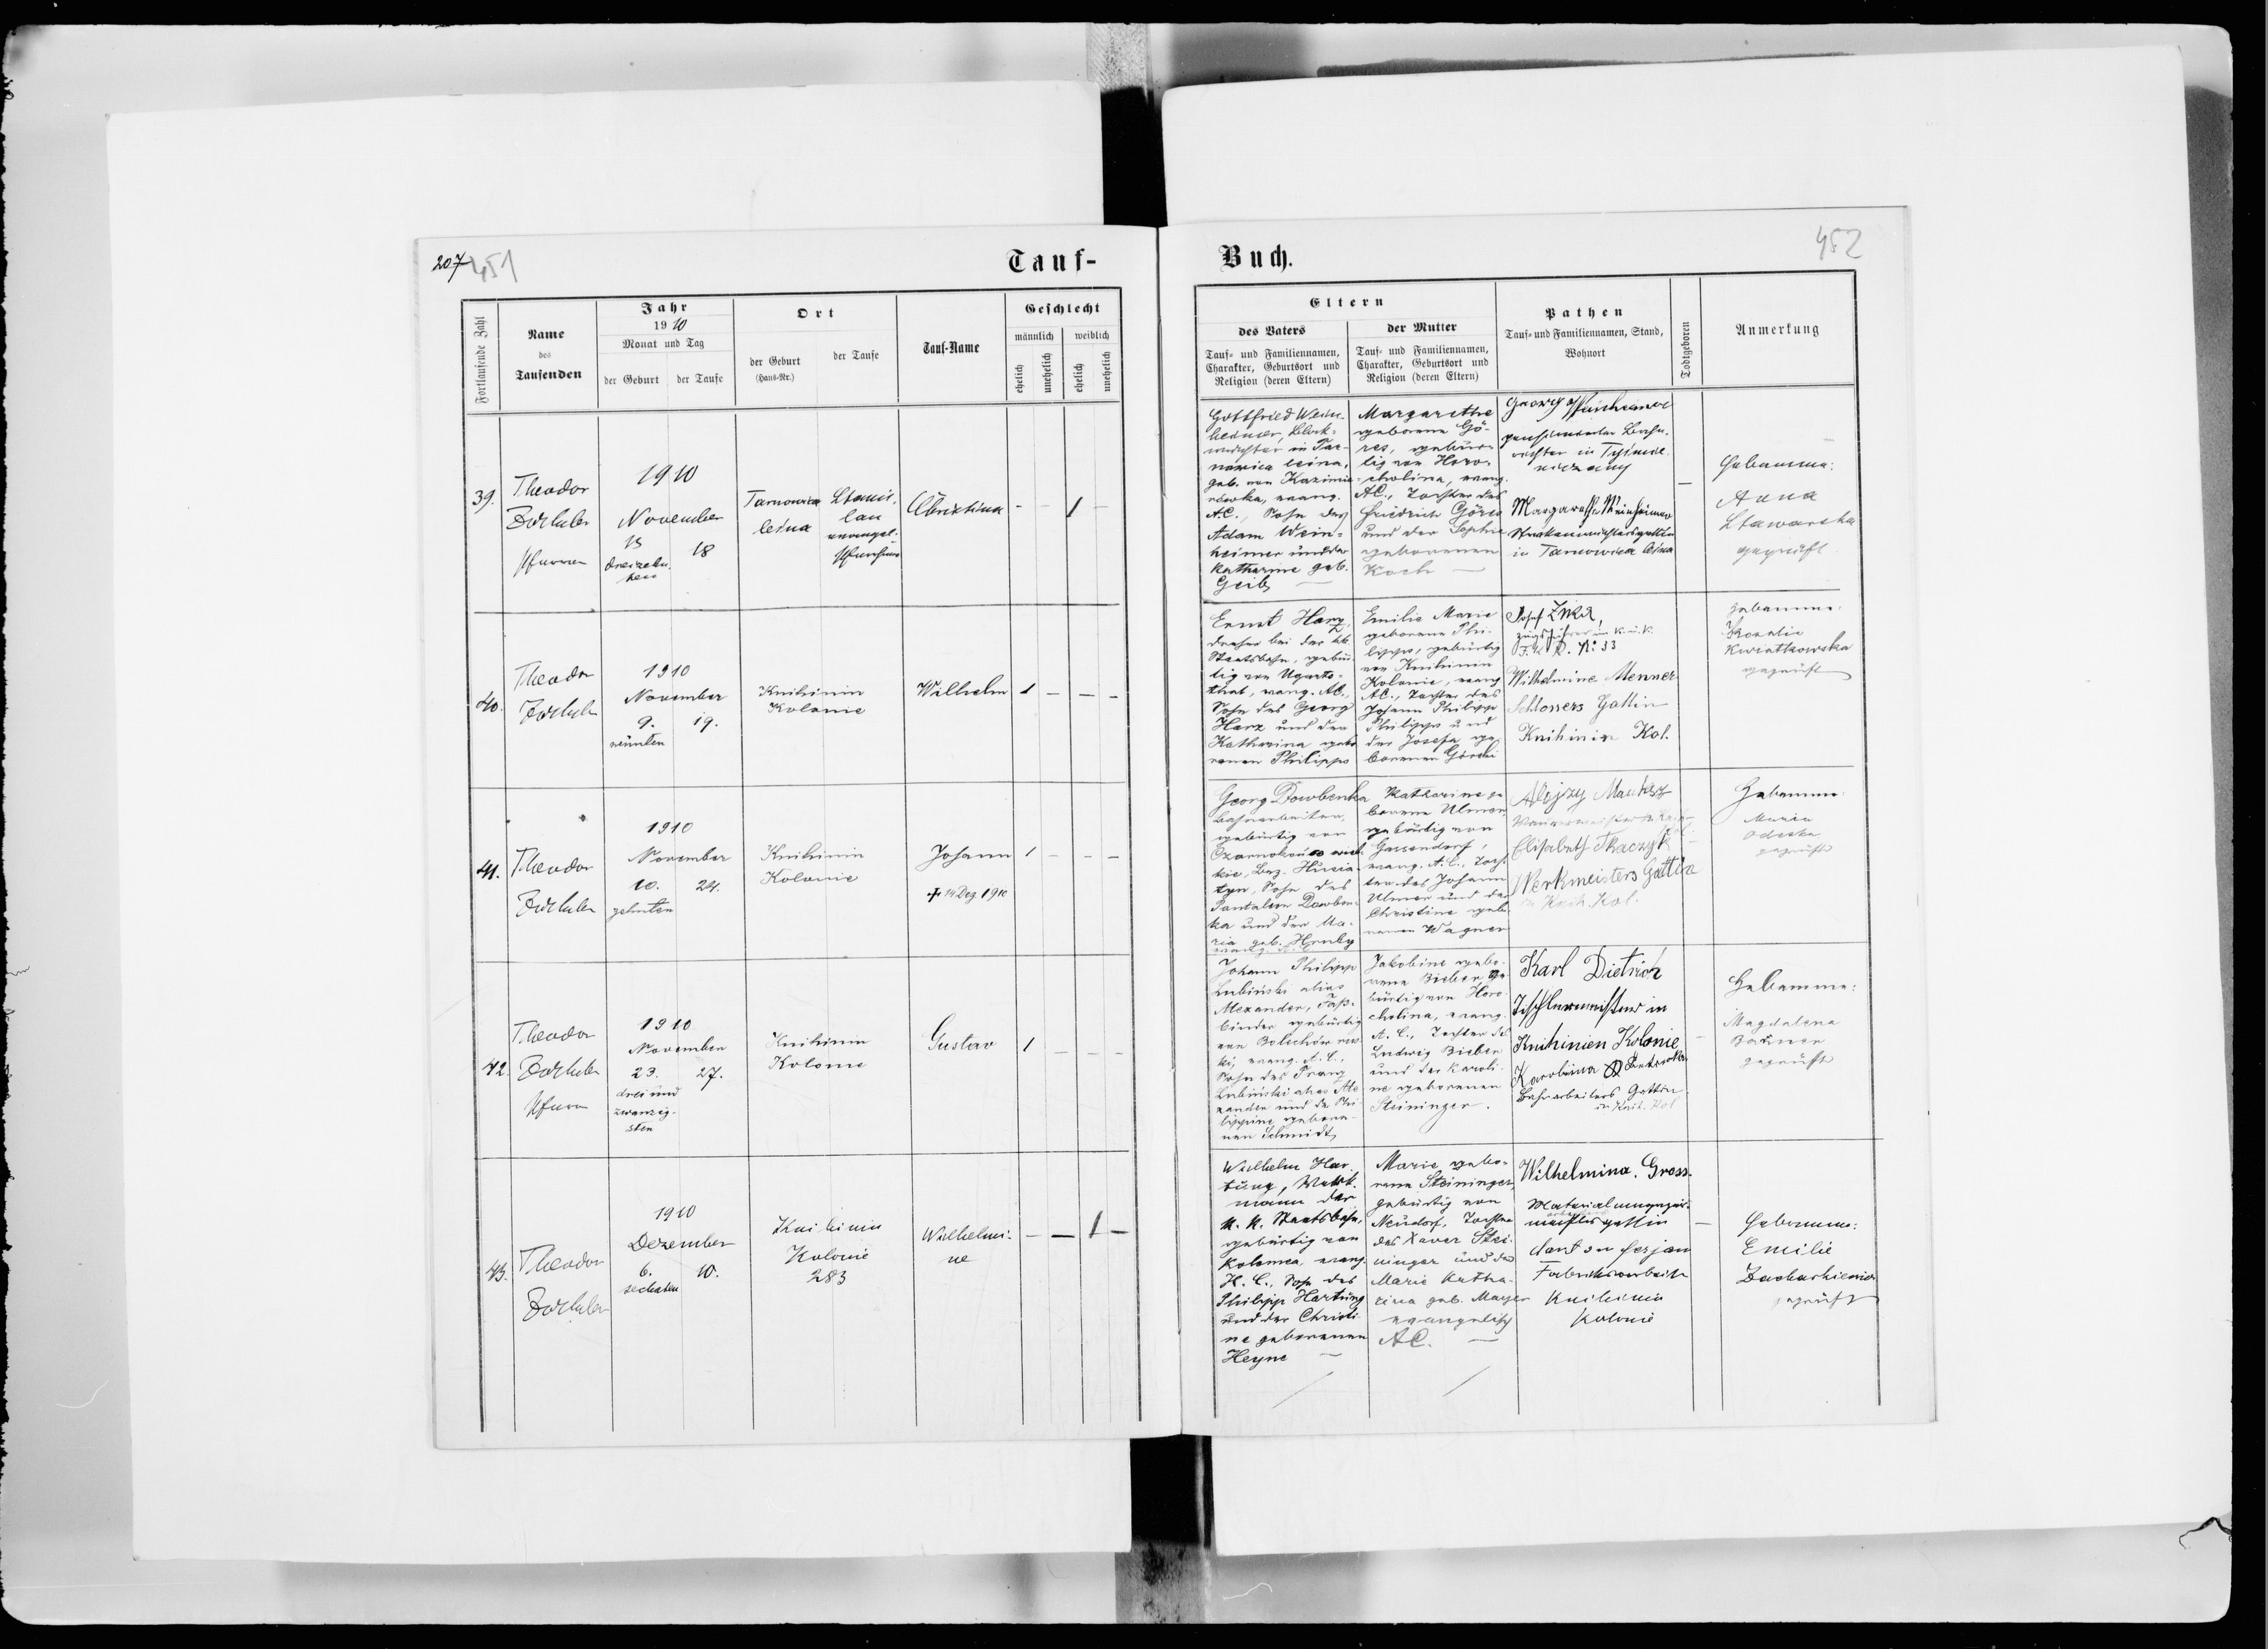 207 451
Tauf-
Buch.
452
Fortlaufende Zahl
Name
des
Taufenden
Jahr
1910
Monat und Tag
der Geburt
der Taufe
Ort
der Geburt
(Haus-Nr.)
der Taufe
Tauf-Name
Geschlecht
männlich
weiblich
ehelich
unehelich
ehelich
unehelich
Eltern
des Vaters
Tauf- und Familiennamen,
Charakter, Geburtsort und
Religion (deren Eltern)
der Mutter
Tauf- und Familiennamen,
Charakter, Geburtsort und
Religion (deren Eltern)
Pathen
Tauf- und Familiennamen, Stand,
Wohnort
Todtgeboren
Anmerkung
39.
Theodor
Zöckler
Pfarrer
1910
November
13
dreizehn-
ten
18
Tarnowica
leśna
Stanis-
lau
evangel.
Christina
- - 1 -
Gottfried Wein-
heimer, Block-
wächter in Tar-
nowica leśna,
geb. von Kazimie-
rówka, evang.
A.C., Sohn des
Adam Wein-
heimer und der
Katharine geb.
Geib
Margarethe
geborene Gö-
res, gebür-
tig von Horo-
cholina, evang.
A.C., Tochter des
Friedrich Göres
und der Sophie
geborenen
Koch
Georg Weinheimer
pensionierter Bahn-
wächter in
Margarethe Weinheimer
in Tarnowica leśna
Hebamme:
Anna
geprüft
40.
Theodor
Zöckler
1910
November
9.
neunten
19.
Knihinin
Kolonie
Wilhelm
1 - - -
Ernst Harz,
Dreher bei der kk.
Staatsbahn, gebür-
tig von Ugarts-
thal, evang. A.C.,
Sohn des Georg
Harz und der
Katharina gebo-
renen Philipps
Emilie Marie
geborene Phi-
lipps, gebürtig
von Knihinin
Kolonie, evang.
A.C., Tochter des
Johann Philipp
Philipps und
der Josefa ge-
borenen Górski
Josef
Zugsführer im k. u. k.
No 33
Wilhelmine Menner
Schlossers Gattin
Knihinin Kol.
Hebamme:
Rozalie
Kwiatkowska
geprüft
41.
Theodor
Zöckler
1910
November
10.
zehnten
24.
Knihinin
Kolonie
Johann
+ 14 Dez. 1910
1 - - -
Georg Dowbenka
Bahnarbeiter,
gebürtig von
Bez. Husia-
tyn, Sohn des
Pantaleon Dowben-
ka und der Ma-
ria geb. Hruby
Katharine ge-
borene Ulmer,
gebürtig von
Gassendorf,
evang. A.C., Toch-
ter des Johann
Ulmer und der
Christine gebo-
renen Wagner
Alojzy
Elisabeth Tkaczyk
Werkmeisters Gattin
in Knih. Kol.
Hebamme:
Maria
geprüft
42.
Theodor
Zöckler
Pfarrer
1910
November
23.
drei und
zwanzig-
sten
27.
Knihinin
Kolonie
Gustav
1 - - -
Johann Philipp
Lubinski alias
Alexander, Faß-
binder gebürtig
evang. A.C.,
Sohn des Franz
Lubinski alias Ale-
xander und der Phi-
lippine gebore-
nen Schmidt
Jakobine gebo-
rene Bieber, ge-
bürtig von Horo-
cholina, evang.
A.C., Tochter des
Ludwig Bieber
und der Karoli-
ne geborenen
Steininger.
Karl Dietrich
Tischlermeister in
Knihinien Kolonie
Karolina
Bahnarbeiters Gattin
in Knih. Kol
Hebamme:
Magdalena
geprüft
43.
Theodor
Zöckler
1910
Dezember
6.
sechsten
10.
Knihinin
Kolonie
283
Wilhelmi-
ne
- - 1 -
Wilhelm Har-
tung, Werk-
mann der
k. k. Staatsbahn,
gebürtig von
Kolomea, evang.
H. C., Sohn des
Philipp Hartung
und der Christi-
ne geborenen
Heyne
Marie gebo-
rene Steininger,
gebürtig von
Neudorf, Tochter
des Xaver Stei-
ninger und der
Marie Katha-
rina geb. Mayer
evangelisch
A.C.
Wilhelmina Gross.
Fabriksarbeiter
Knihinin
Kolonie
Hebamme:
Emilie
geprüft